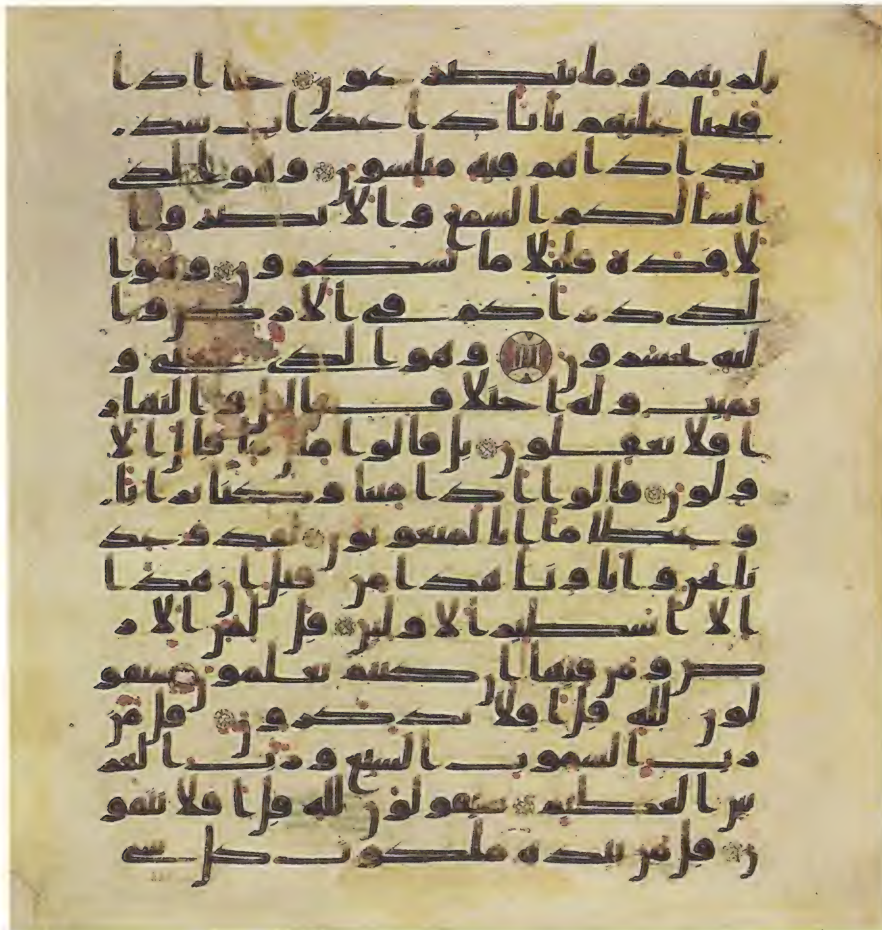 لربهم وما يتضرعون حتى اذا
فتحنا عليهم بابا ذا عذاب شد
يد اذا هم فيه مبلسون وهو الذي
انشا لكم السمع والابصر وا
لافدة قليلا ما تشكرون وهو ا
لذي ذراكم في الارض وا
ليه تحشرون وهو الذي يحي و
يميت وله اختلاف اليل والنهار
افلا تعقلون بل قالوا مثل ما قال الا
ولون قالوا اذا متنا وكنا ترابا
وعظاما انا لمبعوثون لقد وعد
نا نحن واباونا هذا من قبل ان هذا
الا اسطير الاولين قل لمن الار
ض ومن فيها ان كنتم تعلمون سيقو
لون لله قل افلا تذكرون قل من
رب السموت السبع ورب العر
ش العظيم سيقولون لله قل افلا تتقو
ن قل من بيده ملكوت كل شي